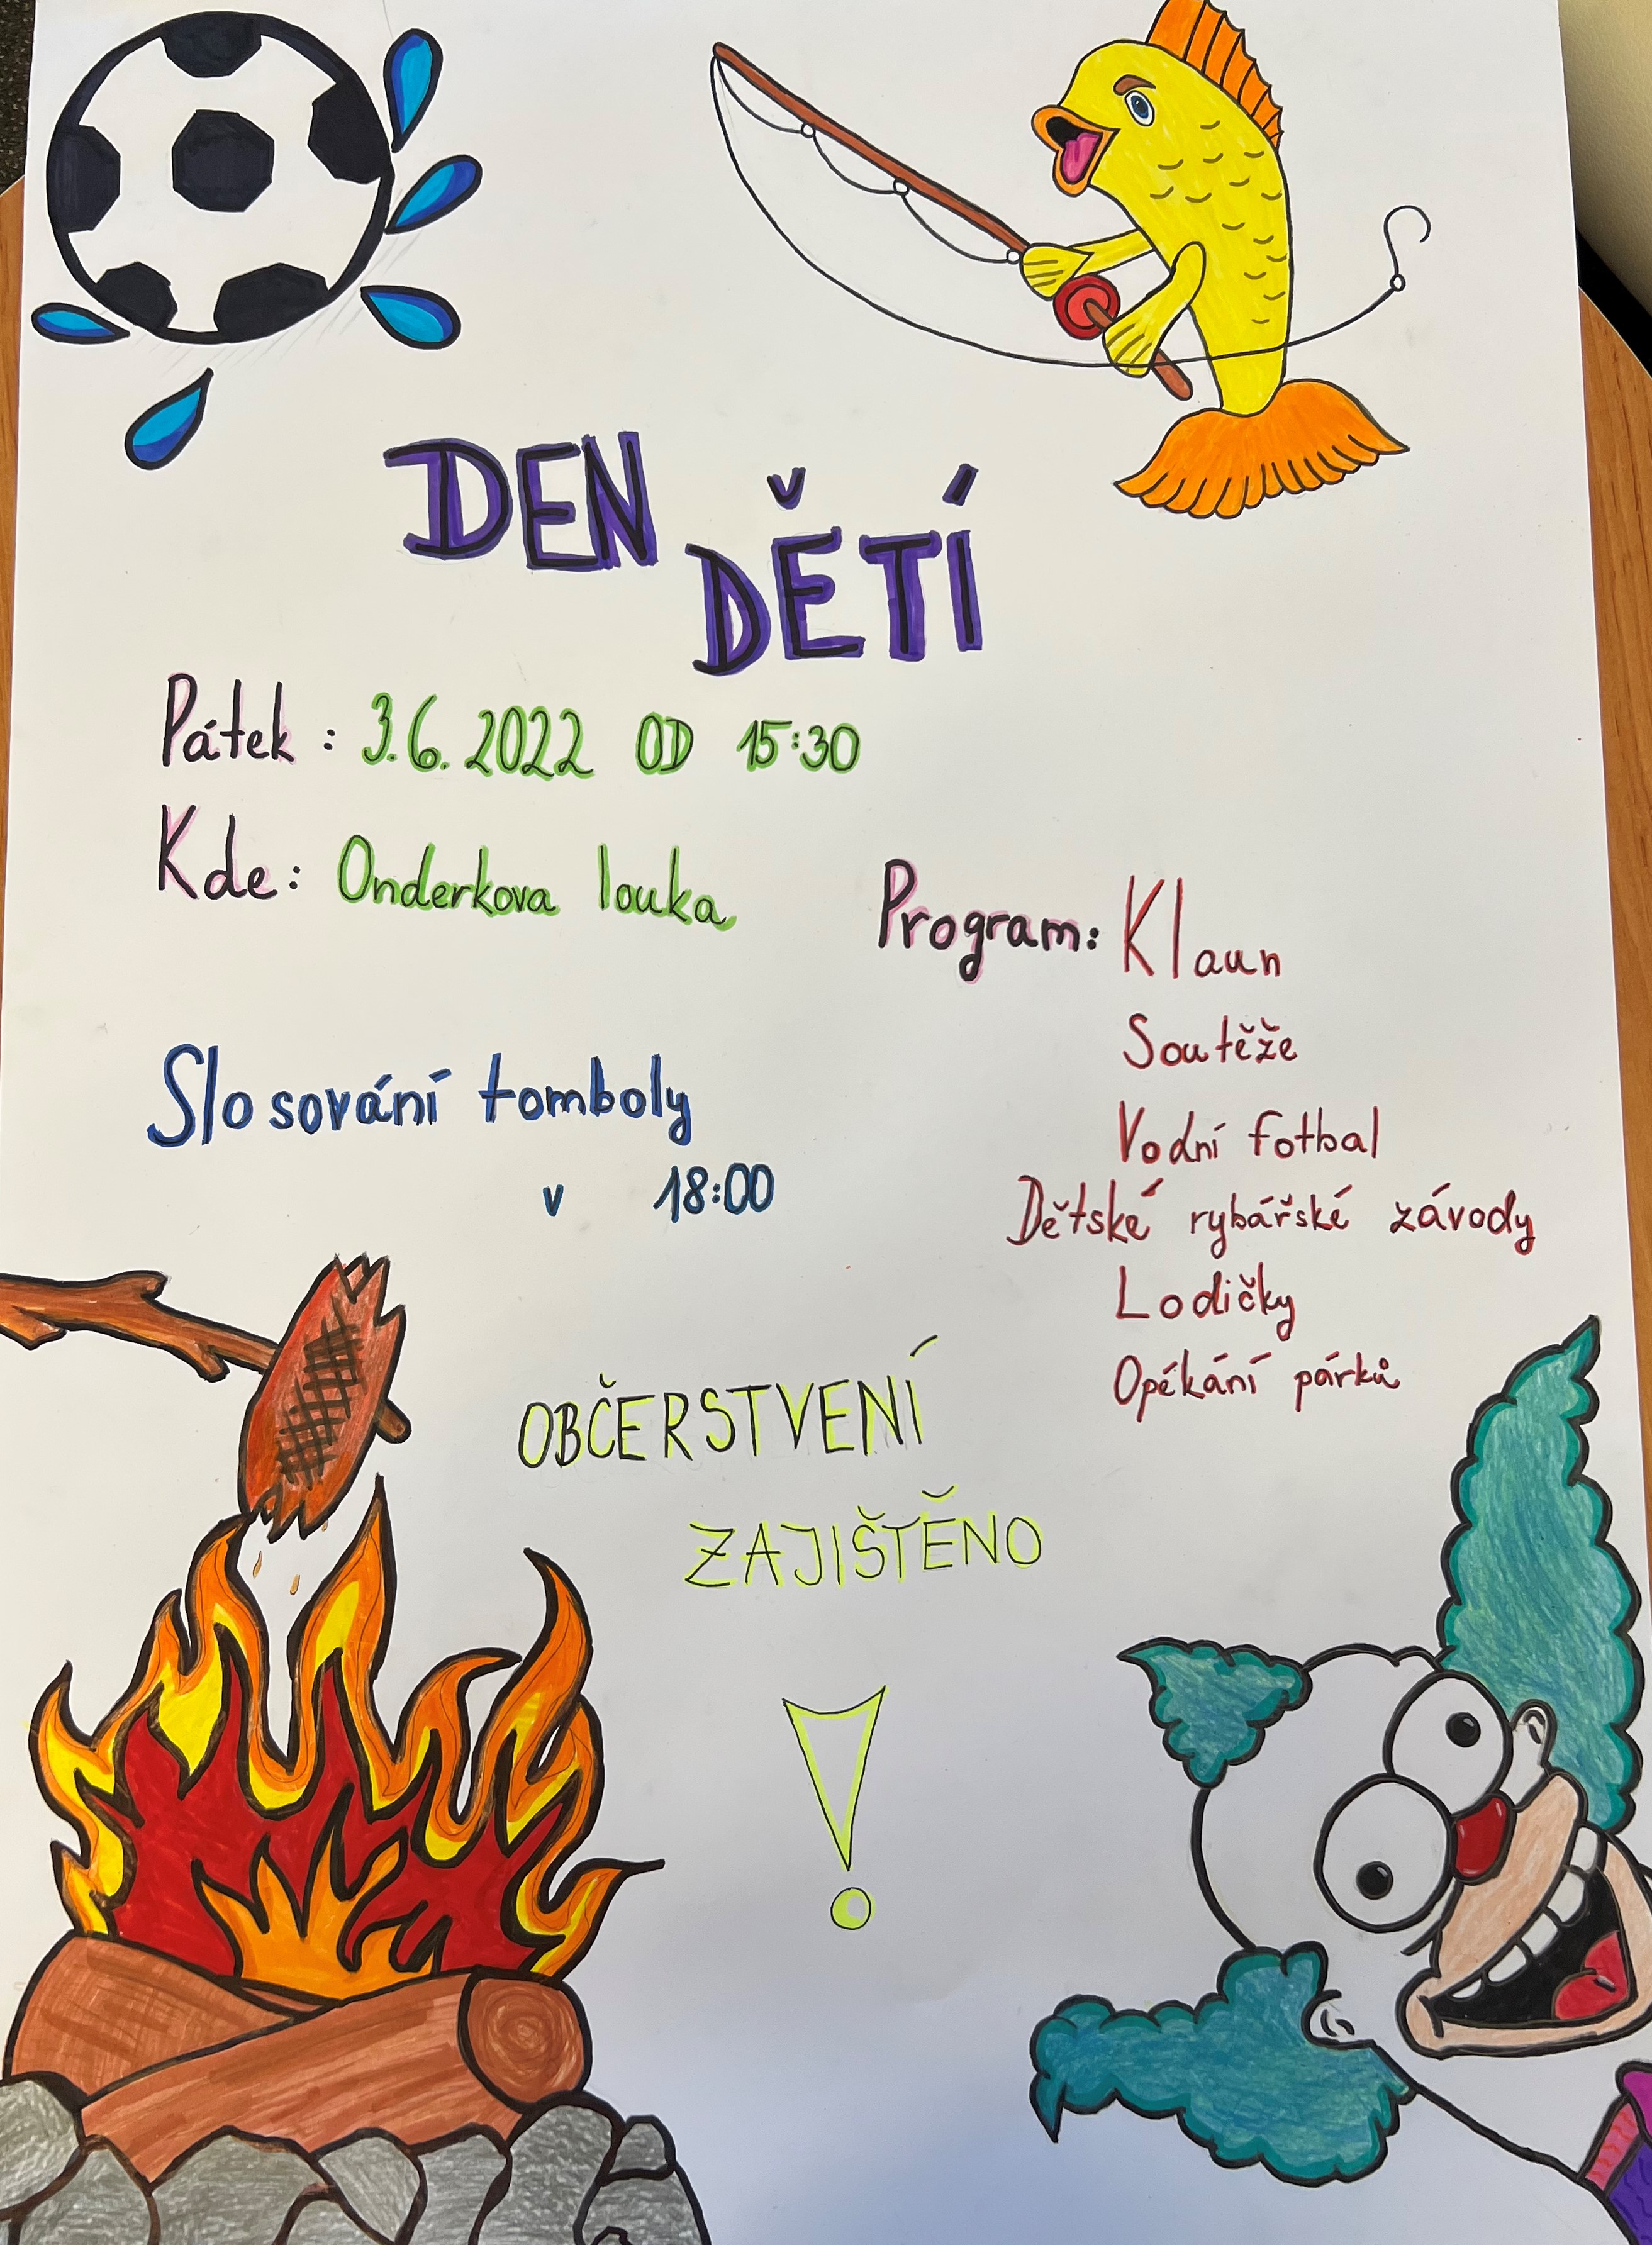 DEN
DĚTÍ
Pátek: 3.6.2022 OD 15:30
Kde: Onderkova louka
Program: Klaun
Soutěže
Vodní fotbal
Dětské rybářské závody
Lodičky
Opékání párků
Slosování tomboly
v 18:00
OBČERSTVENÍ
ZAJIŠTĚNO
!